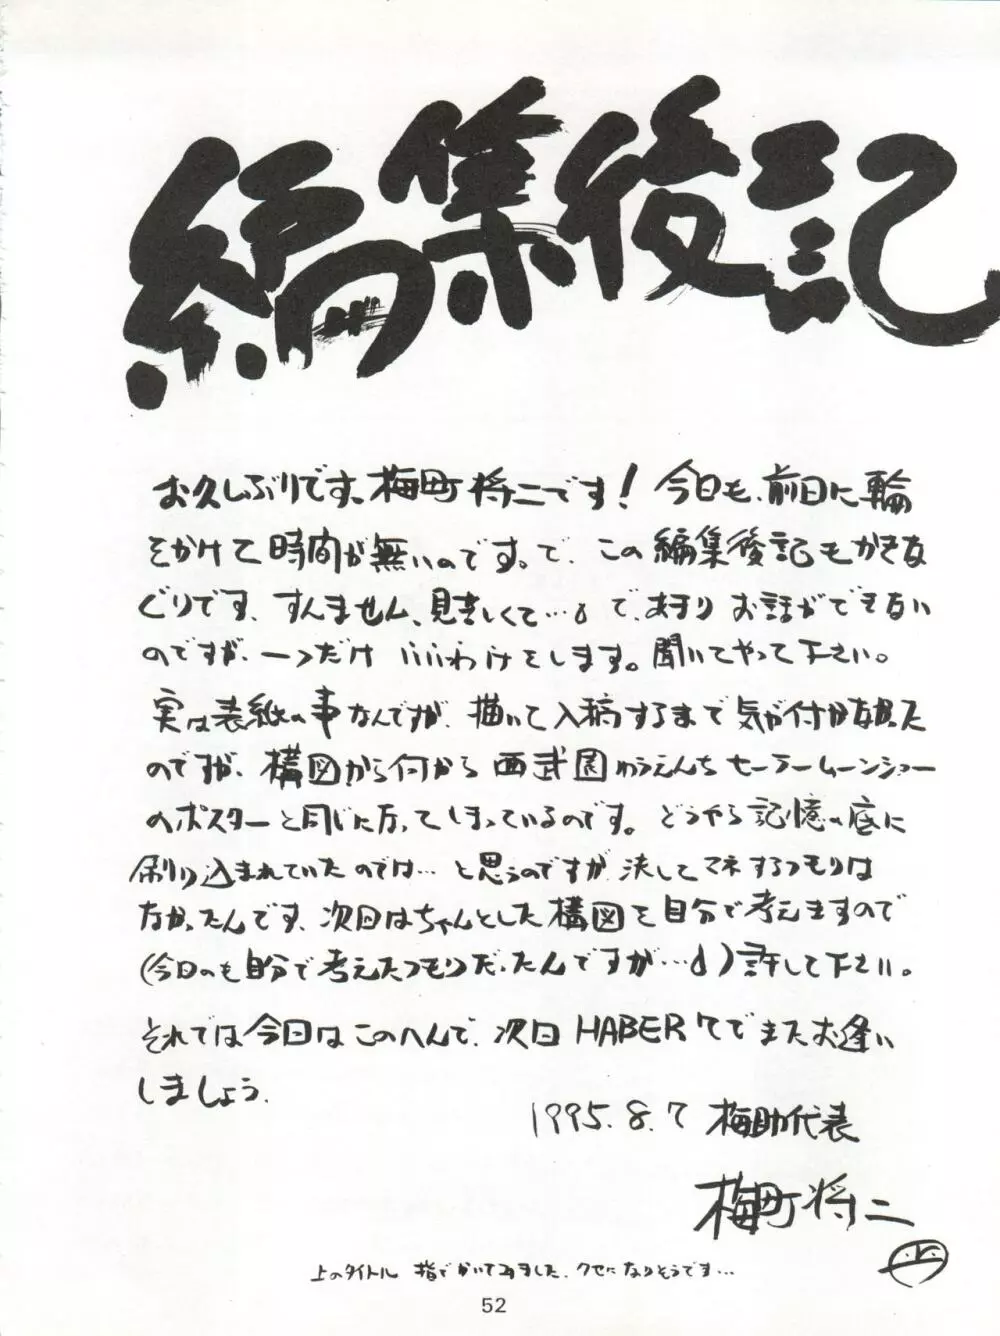 編集後記
お久しぶりです、梅町将二です！今回も、前回に輪
をかけて時間が無いのです。で、この編集後記もかきな
ぐりです、すんません、見苦しくて…。で、あまりお話ができない
のですが、一つだけいいわけをします。聞いてやって下さい。
実は表紙の事なんですが、描いて入稿するまで気が付かなかった
のですが、構図から何から西武園ゆうえんちセーラームーンショー
のポスターと同じに なってしまっているのです。どうやら記憶の底に
刷り込まれていたのでは…と思うのですが、決してマネするつもりは
なかったんです、次回はちゃんとした構図を自分で考えますので
（今回のも自分で考えたつもりだったんですが…。）許して下さい。
それでは今回はこのへんで、次回HABER7でまたお逢い
しましょう。
1995.8.7 梅助代表
梅町将二
上のタイトル 指でかいてみました、クセになりそうです…
52